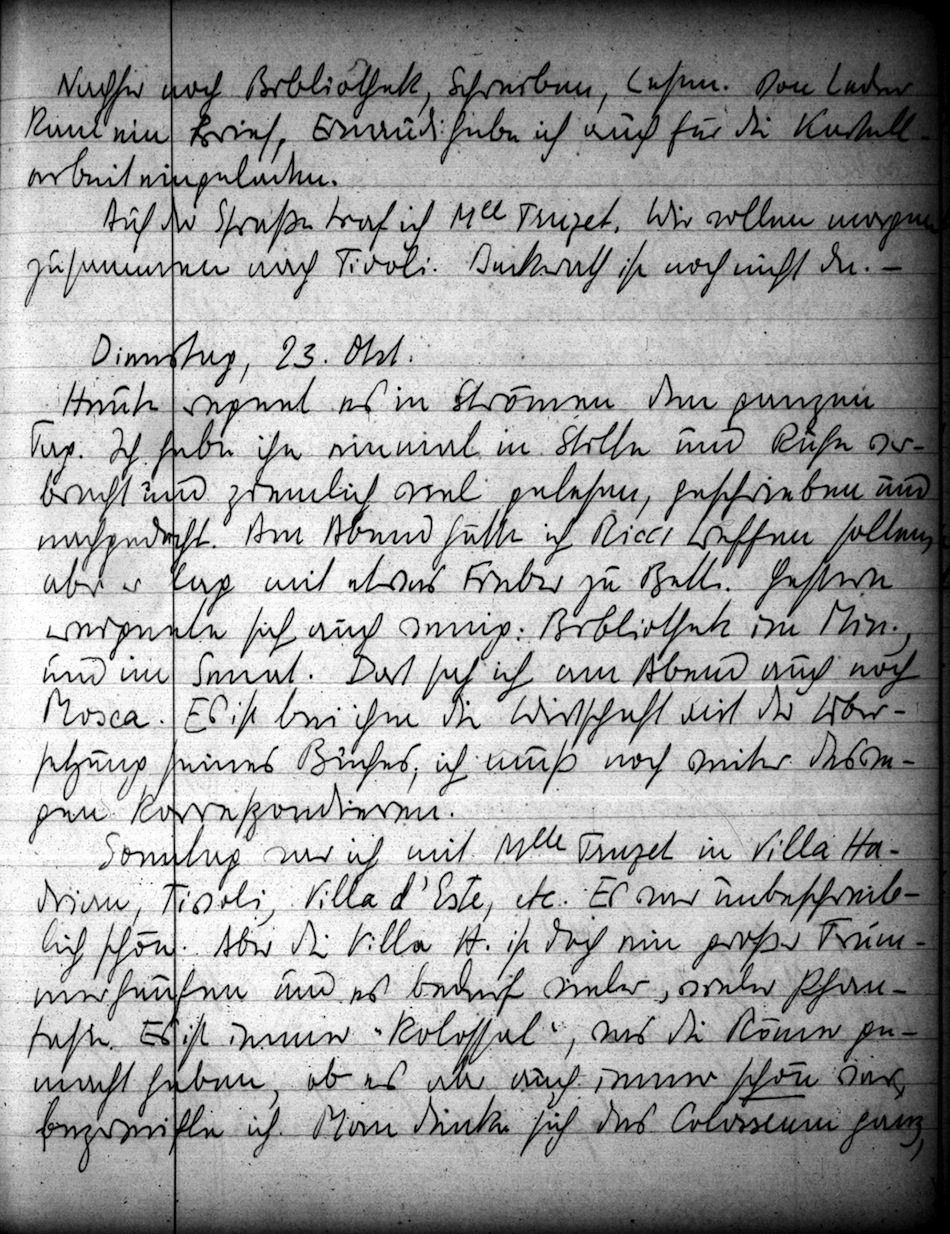 Nachher noch Bibliothek, Schreiben, Lesen. Von Leder
kam ein Brief, habe ich auch für die Kartell-
arbeit eingeladen.
Auf der Straße traf ich Mlle Truzet. Wir wollen morgen
zusammen nach Tivoli. ist noch nicht da. –
Dienstag, 23. Okt.
Heute regnet es in Strömen den ganzen
Tag. Ich habe ihn einmal in Stille und Ruhe ver-
bracht und ziemlich viel gelesen, geschrieben und
nachgedacht. Am Abend hätte ich Ricci treffen sollen,
aber er lag mit etwas Fieber zu Bett. Gestern
ereignete sich auch wenig: Bibliothek im Min.,
und im Senat. Dort sah ich am Abend auch noch
Mosca. Es ist bei ihm die Wirtschaft mit der Über-
setzung seines Buches; ich muß noch weiter deswe-
gen korrespondieren.
Sonntag war ich mit Mlle Truzet in Villa Ha-
drian, Tivoli, Villa d'Este, etc. Es war unbeschreib-
lich schön. Aber die Villa H. ist doch ein großer Trüm-
merhaufen und es bedarf vieler, vieler Phan-
tasie. Es ist immer "kolossal", was die Römer ge-
macht haben, ob es aber auch immer schön war,
bezweifle ich. Man denke sich das Colosseum ganz,